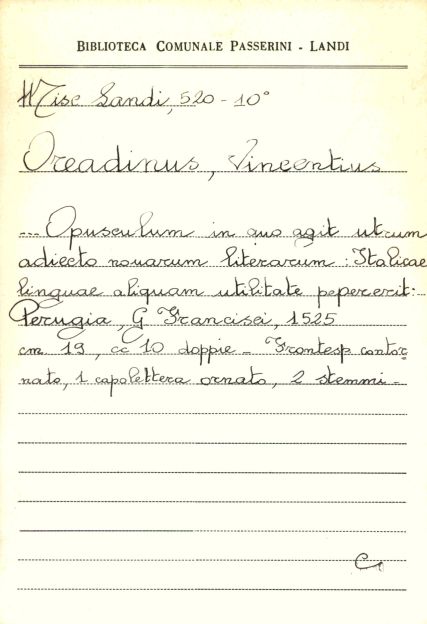 BIBLIOTECA COMUNALE PASSERINI - LANDI
Misc Landi, 520 - 10°
Oreadinus, Vincentius
... Opusculum in quo agit utrum
adiecto novarum literarum : Italicae
linguae aliquam utilitate pepererit:
Perugia, G Francisci, 1525
cm 19, cc 10 doppie - Frontesp contor
nato, 1 capolettera ornato, 2 stemmi -
C